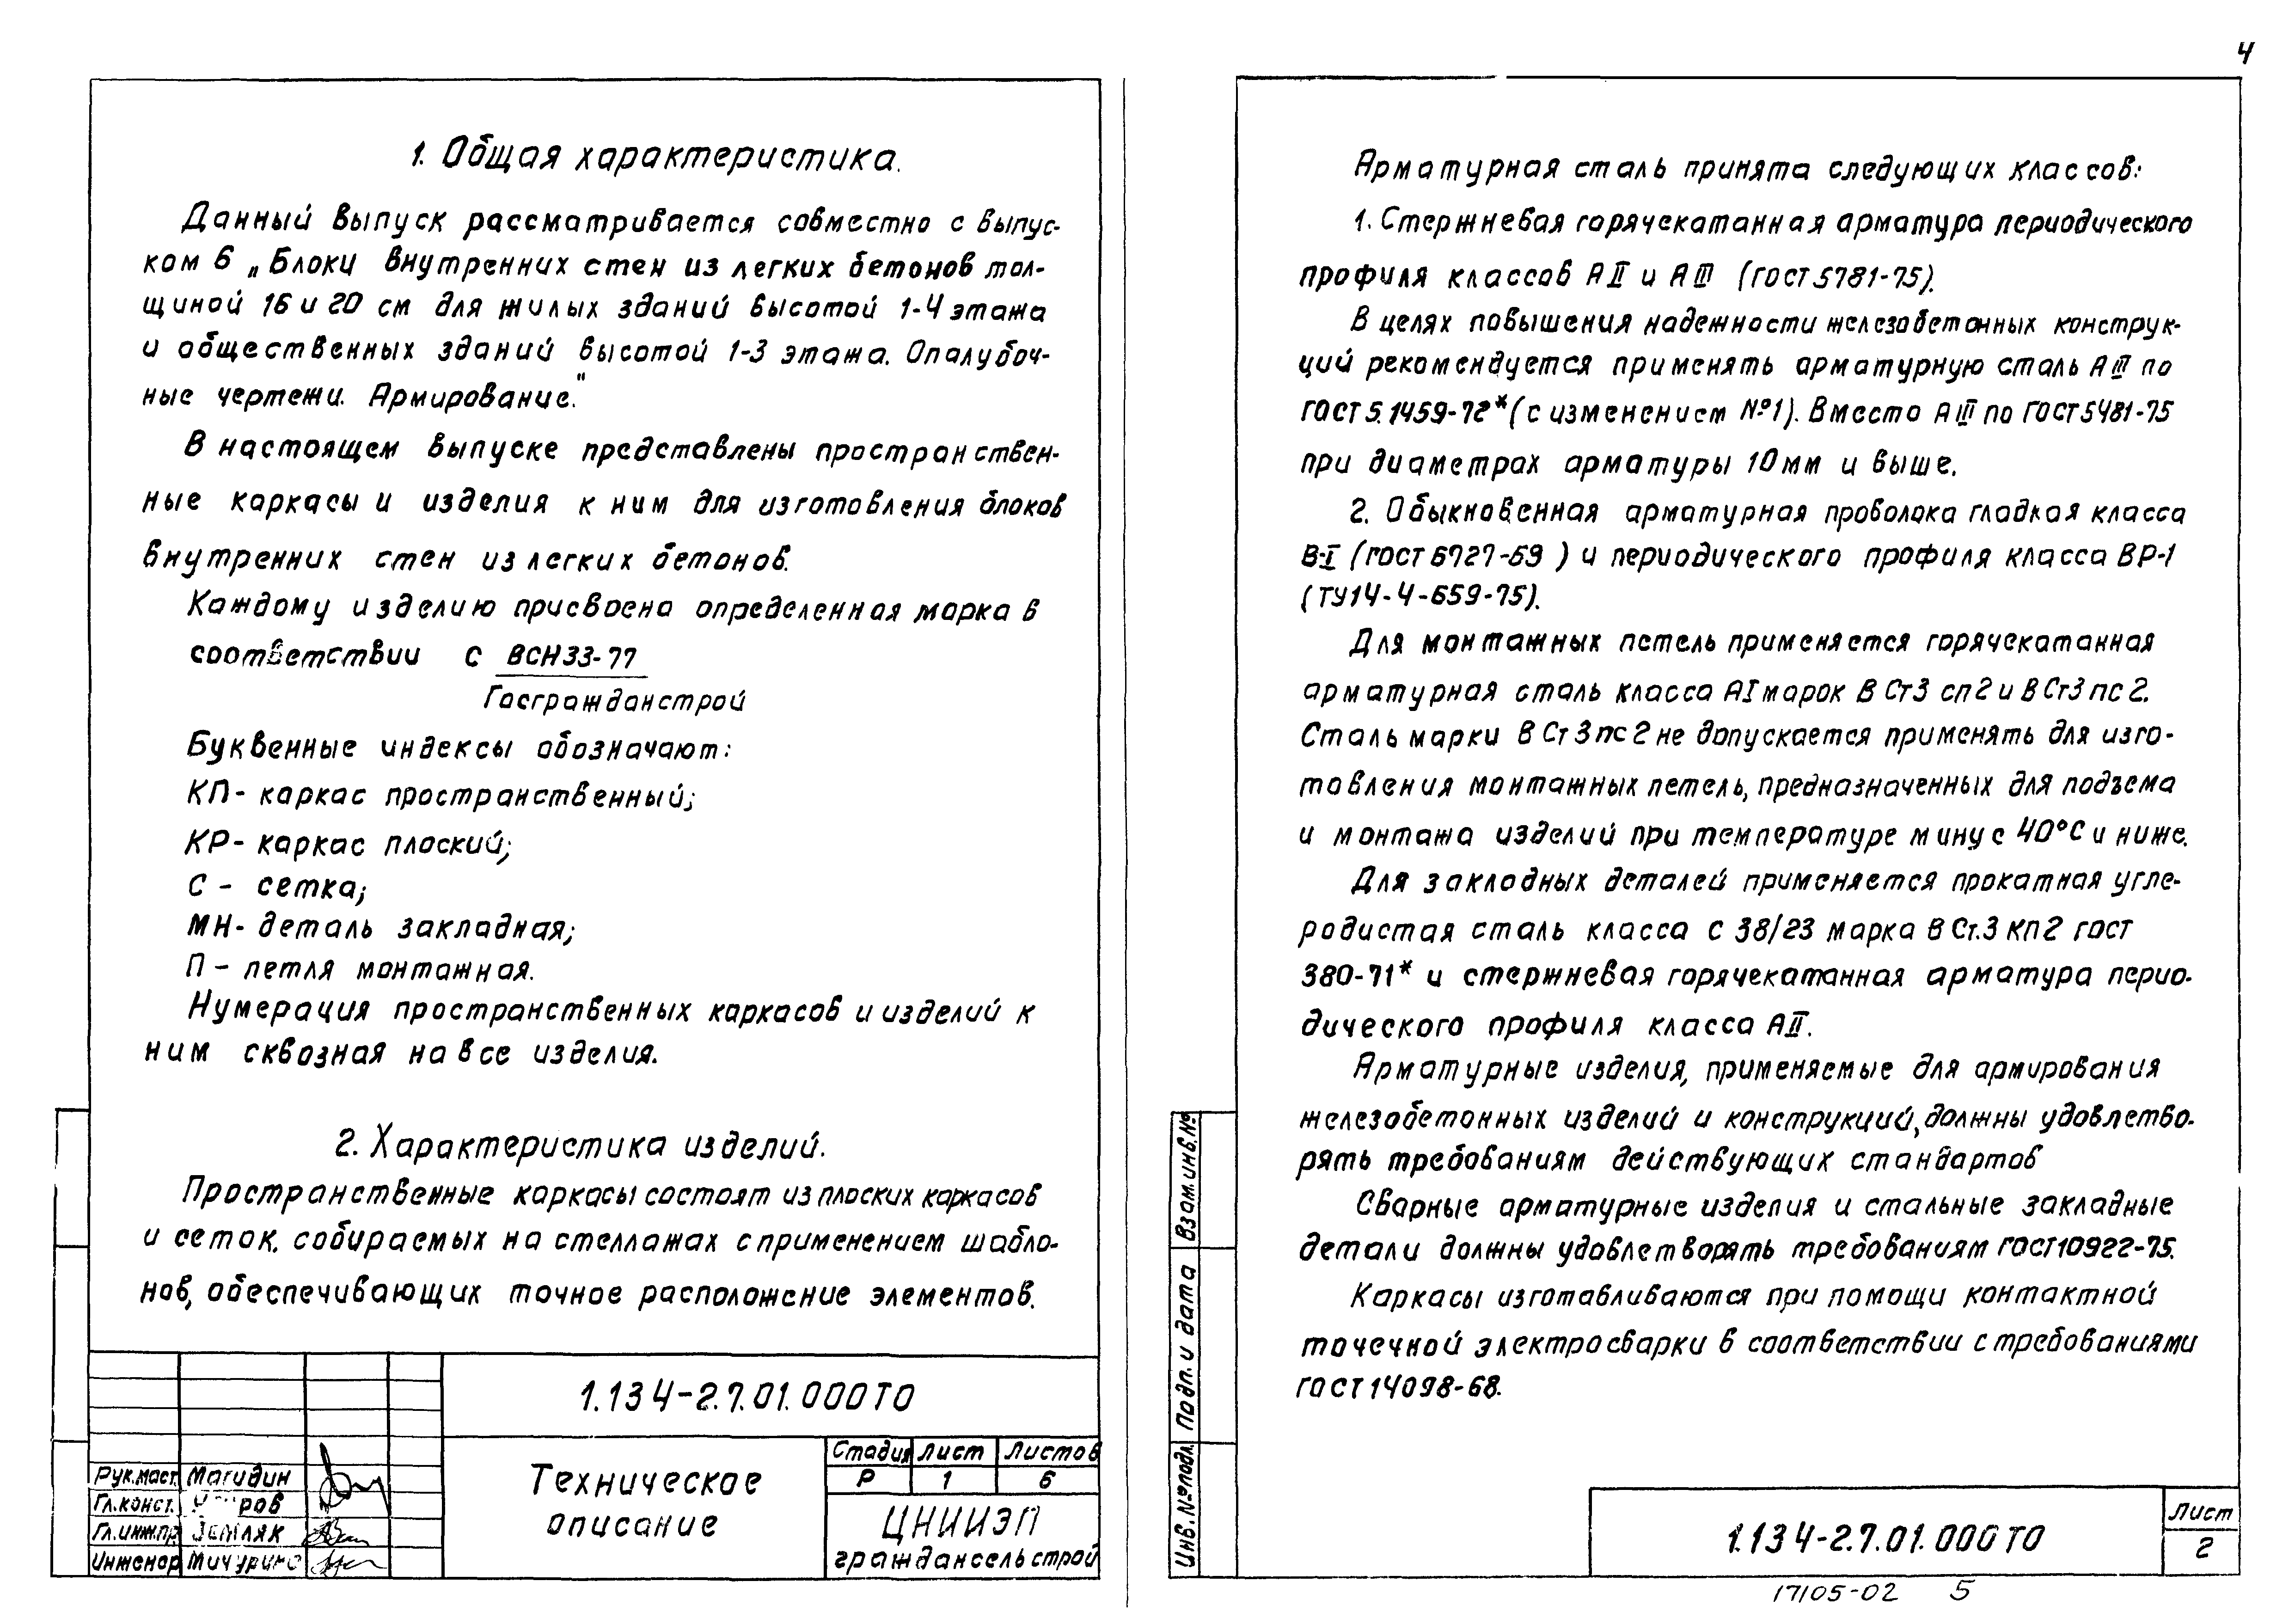 4
1. Общая характеристика.
Данный выпуск рассматривается совместно с выпус-
ком 6 „Блоки внутренних стен из легких бетонов тол-
щиной 16 и 20 см для жилых зданий высотой 1-4 этажа
и общественных зданий высотой 1-3 этажа. Опалубоч-
ные чертежи. Армирование."
В настоящем выпуске представлены пространствен-
ные каркасы и изделия к ним для изготовления блоков
внутренних стен из легких бетонов.
Каждому изделию присвоена определенная марка в
соответствии с ВСН33-77
Госгражданстрой
Буквенные индексы обозначают:
КП- каркас пространственный;
КР- каркас плоский;
С - сетка;
МН- деталь закладная;
П - петля монтажная.
Нумерация пространственных каркасов и изделий к
ним сквозная на все изделия.
2. Характеристика изделий.
Пространственные каркасы состоят из плоских каркасов
и сеток. собираемых на стеллажах с применением шабло-
нов, обеспечивающих точное расположение элементов.
1.134-2.7.01.000ТО
Техническое
описание
Стадия Лист Листов
Р 1 6
ЦНИИЭП
граждансельстрой
Рук.маст. Магидин
Гл.конст.
Гл.инж.пр. Земляк
Инженер Мичурина
Арматурная сталь принята следующих классов:
1. Стержневая горячекатанная арматура периодического
профиля классов АII и АIII (ГОСТ 5781-75).
В целях повышения надежности железобетонных конструк-
ций рекомендуется применять арматурную сталь АIII по
ГОСТ 5.1459-72* (с изменением №1). Вместо АIII по ГОСТ 5481-75
при диаметрах арматуры 10мм и выше.
2. Обыкновенная арматурная проволока гладкая класса
В-I (ГОСТ 6727-53 ) и периодического профиля класса ВР-1
(ТУ14-4-659-75).
Для монтажных петель применяется горячекатанная
арматурная сталь класса АI марок В Ст3 сп2 и В Ст3 пс 2.
Сталь марки В Ст 3 пс 2 не допускается применять для изго-
товления монтажных петель, предназначенных для подъема
и монтажа изделий при температуре минус 40°С и ниже.
Для закладных деталей применяется прокатная угле-
родистая сталь класса С 38/23 марка В Ст.3 КП2 ГОСТ
380-71* и стержневая горячекатанная арматура перио-
дического профиля класса АII.
Арматурные изделия, применяемые для армирования
железобетонных изделий и конструкций, должны удовлетво-
рять требованиям действующих стандартов
Сварные арматурные изделия и стальные закладные
детали должны удовлетворять требованиям ГОСТ10922-75.
Каркасы изготавливаются при помощи контактной
точечной электросварки в соответствии с требованиями
ГОСТ 14098-68.
Взам.инв.№
Подп. и дата
Инв.№подл.
1.134-2.7.01.000ТО
Лист
2
17105-02 5